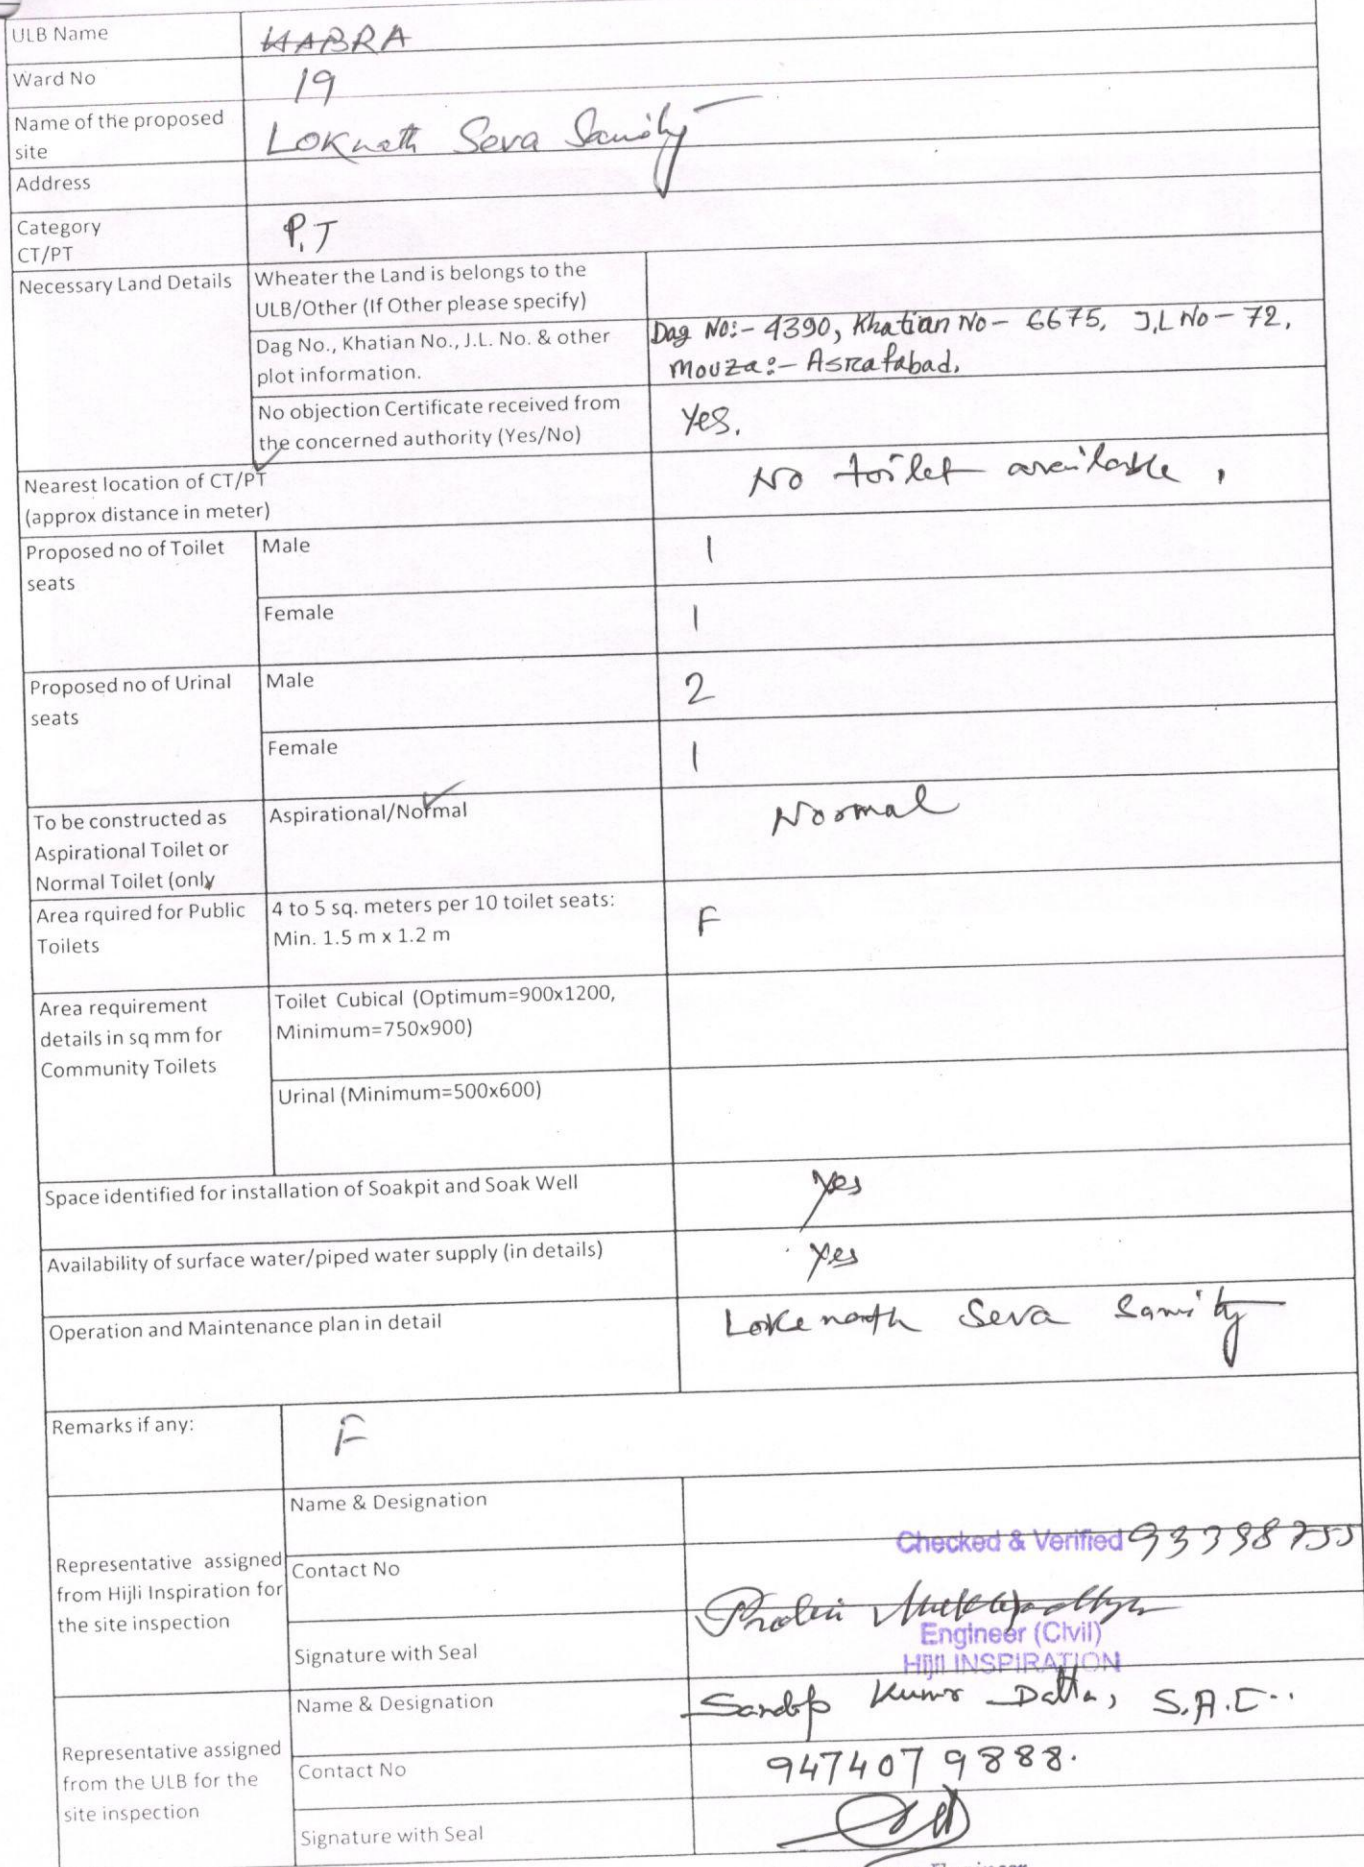 ULB Name HABRA
Ward No 19
Name of the proposed
site
Loknath Seva Samity
Address
Category
CT/PT
P.T
Necessary Land Details
Wheater the Land is belongs to the
ULB/Other (If Other please specify)
Dag No., Khatian No., J.L. No. & other
plot information.
Dag No:- 4390, Khatian No - 6675, J.L No - 72,
Mouza:- Asrafabad.
No objection Certificate received from
the concerned authority (Yes/No)
Yes.
Nearest location of CT/PT
(approx distance in meter)
No toilet available,
Proposed no of Toilet
seats
Male 1
Female 1
Proposed no of Urinal
seats
Male 2
Female 1
To be constructed as
Aspirational Toilet or
Normal Toilet (only
Aspirational/Normal
Normal
Area rquired for Public
Toilets
4 to 5 sq. meters per 10 toilet seats:
Min. 1.5 m x 1.2 m
F
Area requirement
details in sq mm for
Community Toilets
Toilet Cubical (Optimum=900x1200,
Minimum=750x900)
Urinal (Minimum=500x600)
Space identified for installation of Soakpit and Soak Well yes
Availability of surface water/piped water supply (in details) yes
Operation and Maintenance plan in detail Lokenath Seva Samity
Remarks if any: F
Representative assigned
from Hijli Inspiration for
the site inspection
Name & Designation
Checked & Verified
Contact No
Signature with Seal
Engineer (Civil)
Hijli INSPIRATION
Representative assigned
from the ULB for the
site inspection
Name & Designation
Sandip Kumar Datta,
Contact No 9474079888.
Signature with Seal